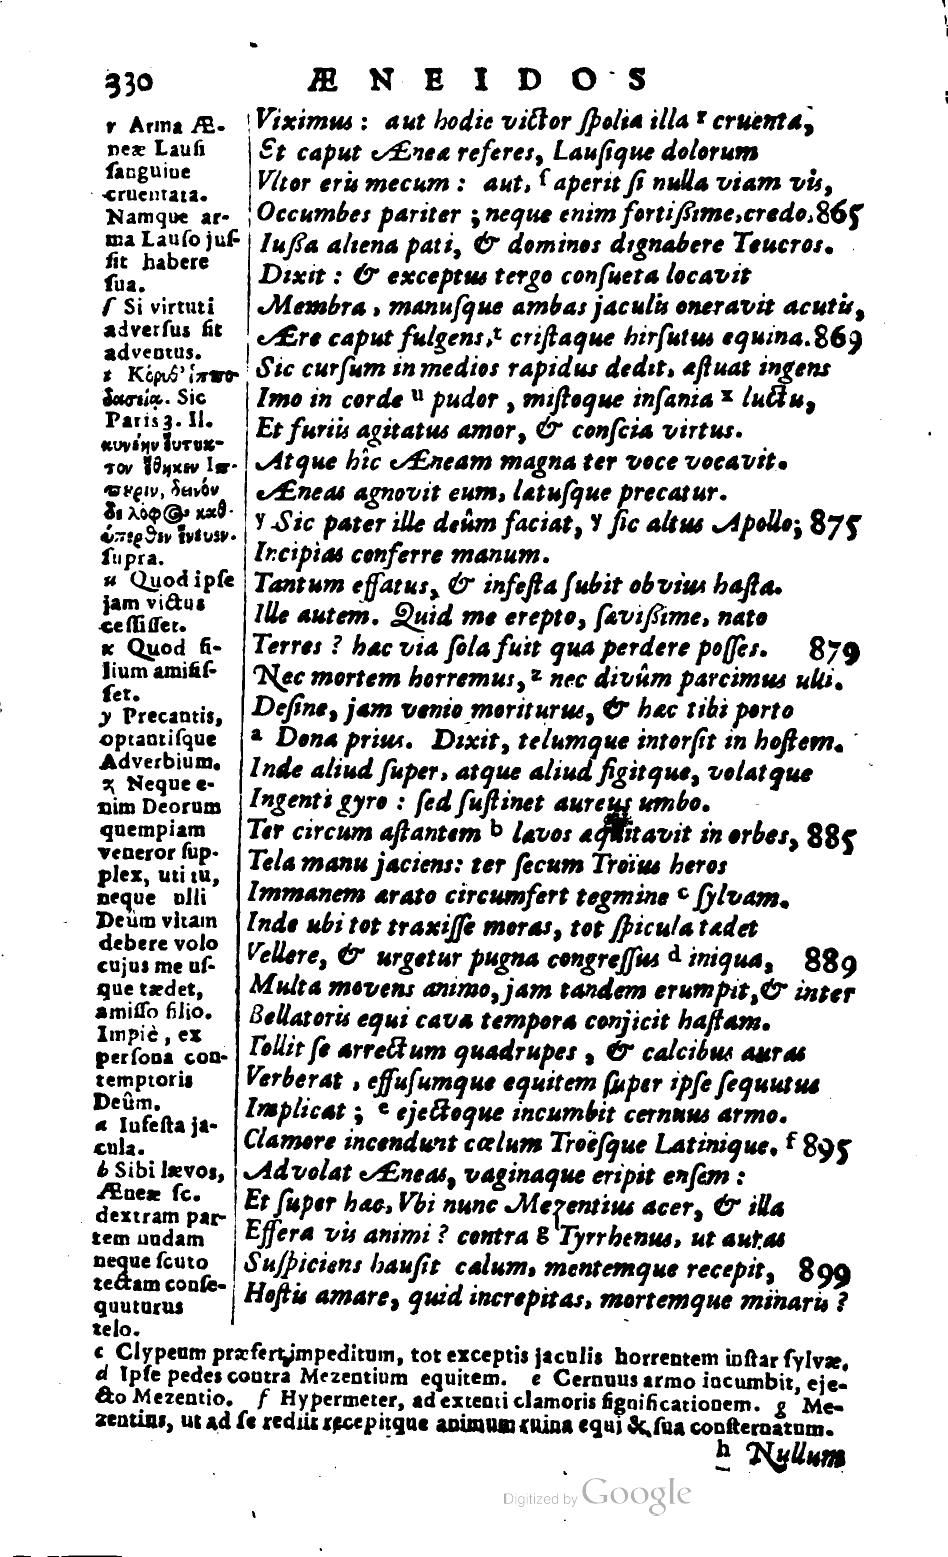 330 ÆNEIDOS
r Arma Æ-
neæ Lauſi
ſanguine
cruentata.
Namque ar-
ma Lauſo juſ-
ſit habere
ſua.
ſ Si virtuti
adverſus ſit
adventus.
t Κόρυθ' ἱππο-
δασείᾳ. Sic
Paris 3. Il.
κυνέην εὔτυκ-
τον ἔθηκεν Ιπ-
πουριν, δεινόν
δε λόφος καθ-
ύπερθεν ἔνευεν.
ſupra.
u Quod ipſe
jam victus
ceſſiſſet.
x Quod fi-
lium amiſiſ-
ſet.
y Precantis,
optantiſque
Adverbium.
z Neque e-
nim Deorum
quempiam
veneror ſup-
plex, uti tu,
neque ulli
Deûm vitam
debere volo
cujus me uſ-
que tædet,
amiſſo filio.
Impiè, ex
perſona con-
temptoris
Deûm.
a Infeſta ja-
cula.
b Sibi lævos,
Æneæ ſc.
dextram par-
tem nudam
neque ſcuto
tectam conſe-
quuturus
telo.
Viximus: aut hodie victor ſpolia illa r cruenta,
Et caput Æneæ referes, Lauſique dolorum
Vltor eris mecum: aut, ſ aperit ſi nulla viam vis,
Occumbes pariter; neque enim fortißime, credo, 865
Iußa aliena pati, & dominos dignabere Teucros.
Dixit: & exceptus tergo conſueta locavit
Membra, manuſque ambas jaculis oneravit acutis,
Ære caput fulgens, t criſtaque hirſutus equina. 869
Sic curſum in medios rapidus dedit, æſtuat ingens
Imo in corde u pudor, miſtoque inſania x luctu,
Et furiis agitatus amor, & conſcia virtus.
Atque hîc Æneam magna ter voce vocavit.
Æneas agnovit eum, lætuſque precatur.
y Sic pater ille deûm faciat, y ſic altus Apollo; 875
Incipias conferre manum.
Tantum effatus, & infeſta ſubit obvius haſta.
Ille autem. Quid me erepto, ſævißime, nato
Terres? hæc via ſola fuit qua perdere poſſes. 879
Nec mortem horremus, z nec divûm parcimus ulli.
Deſine, jam venio moriturus, & hæc tibi porto
a Dona prius. Dixit, telumque intorſit in hoſtem.
Inde aliud ſuper, atque aliud figitque, volatque
Ingenti gyro: ſed ſuſtinet aureus umbo.
Ter circum aſtantem b lævos aquitavit in orbes, 885
Tela manu jaciens: ter ſecum Troïus heros
Immanem ærato circumfert tegmine c ſylvam.
Inde ubi tot traxiſſe moras, tot ſpicula tædet
Vellere, & urgetur pugna congreſſus d iniqua, 889
Multa movens animo, jam tandem erumpit, & inter
Bellatoris equi cava tempora conjicit haſtam.
Tollit ſe arrectum quadrupes, & calcibus auras
Verberat, effuſumque equitem ſuper ipſe ſequutus
Implicat; e ejectoque incumbit cernuus armo.
Clamore incendunt cœlum Troësque Latinique. f 895
Advolat Æneas, vaginaque eripit enſem:
Et ſuper hæc, Vbi nunc Mezentius acer, & illa
Effera vis animi? contra g Tyrrhenus, ut auras
Suſpiciens hauſit cælum, mentemque recepit, 899
Hoſtis amare, quid increpitas, mortemque minaris?
c Clypeum præfert, impeditum, tot exceptis jaculis horrentem inſtar ſylvæ.
d Ipſe pedes contra Mezentium equitem. e Cernuus armo incumbit, eje-
cto Mezentio. f Hypermeter, ad extenti clamoris ſignificationem. g Me-
zentius, ut ad ſe rediit recepitque animum ruina equi & ſua conſternatum.
h Nullum
Digitized by Google